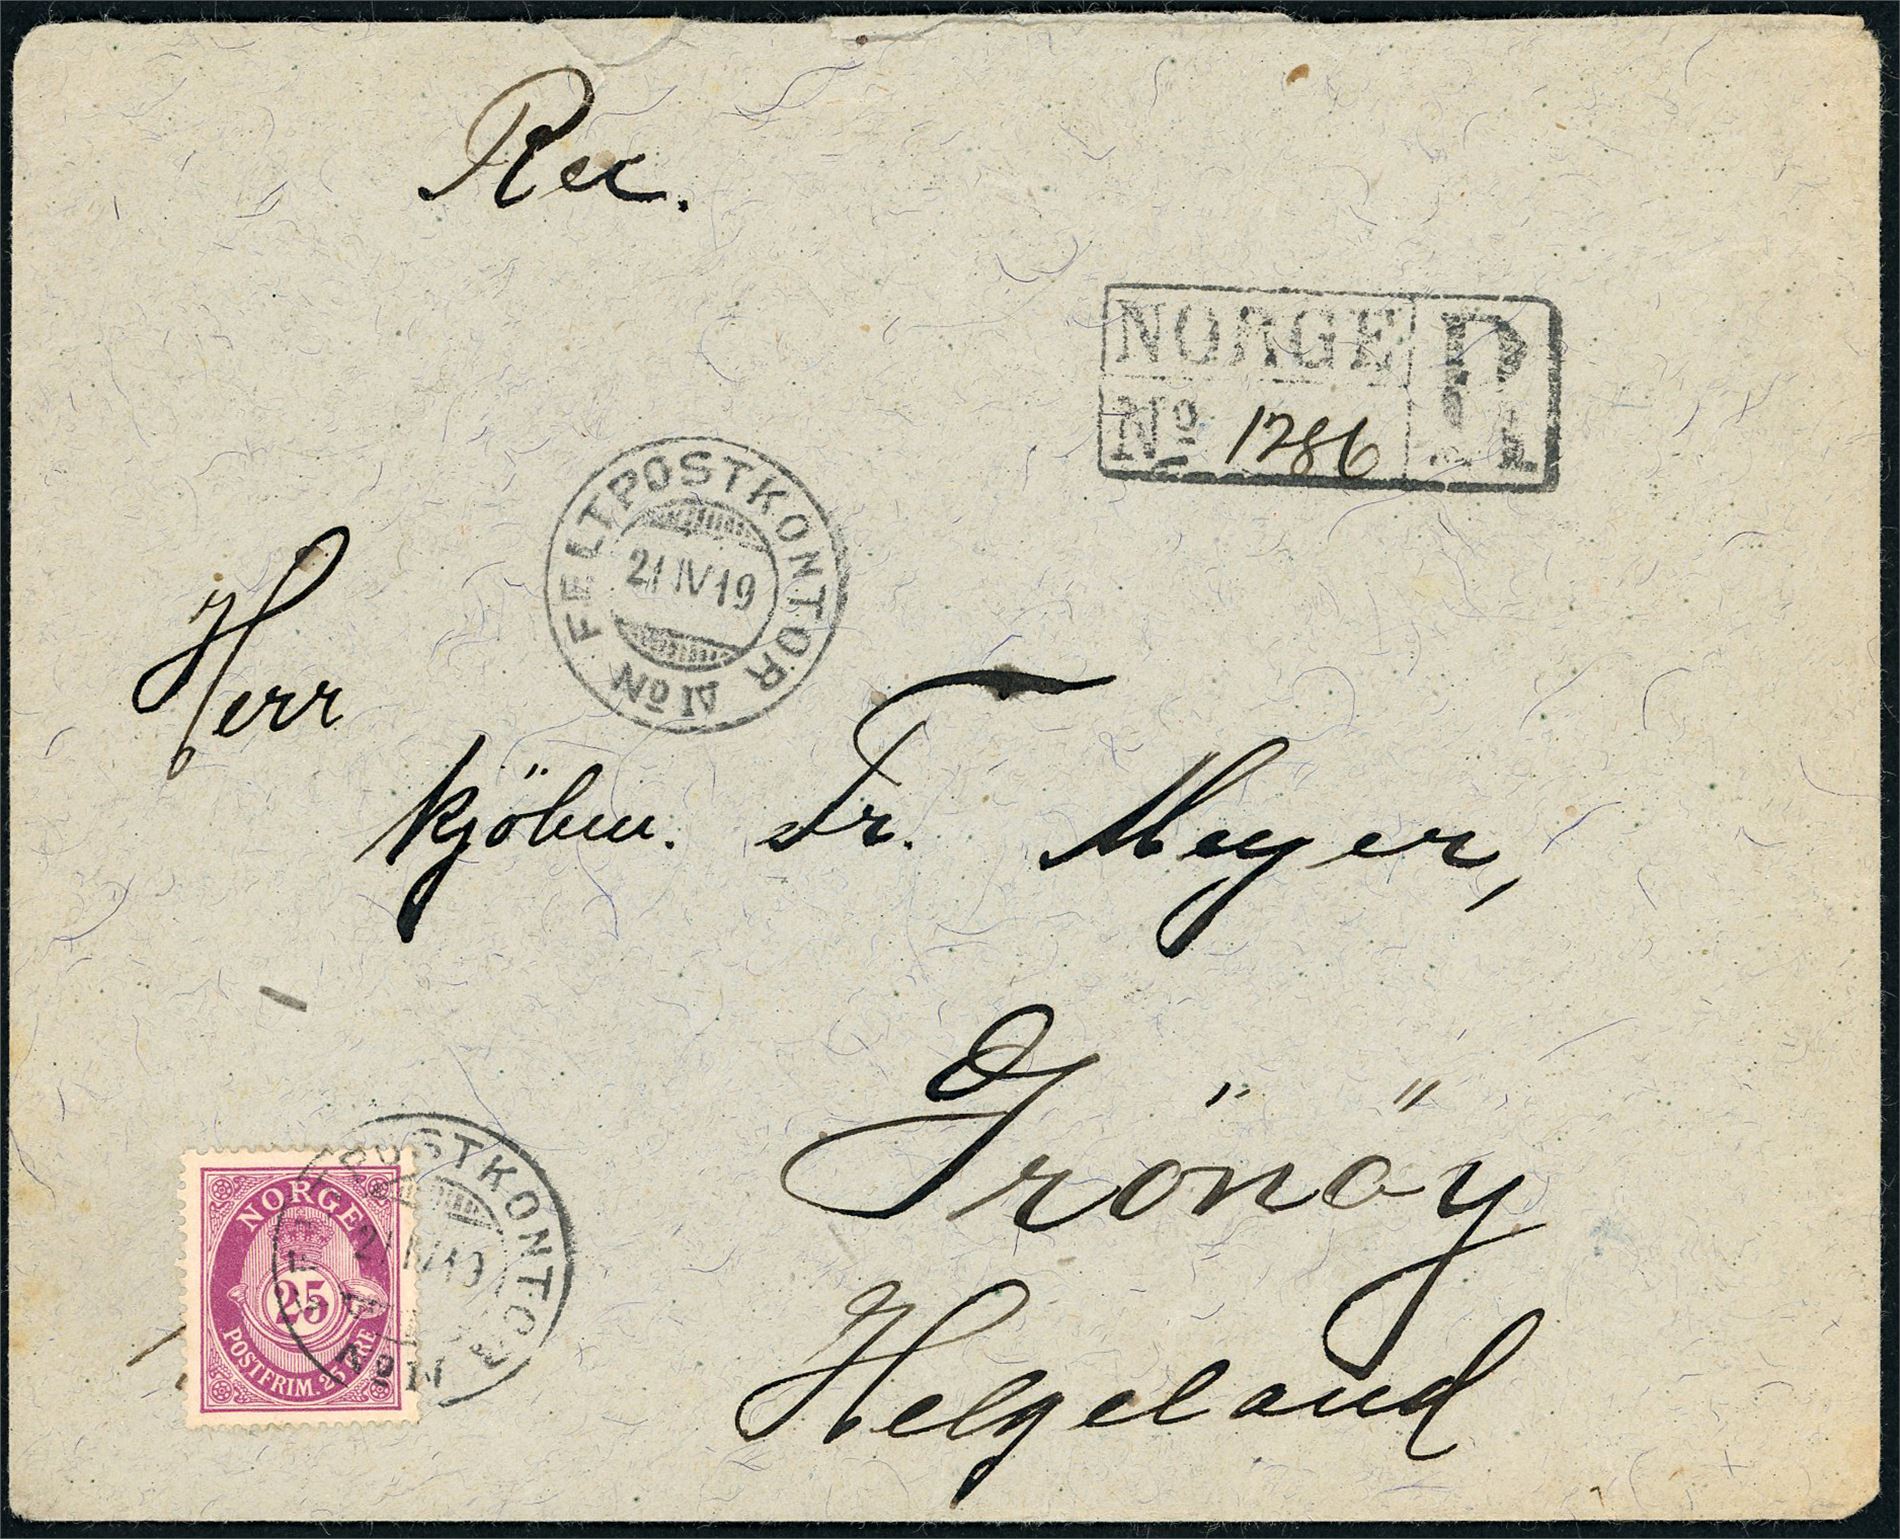 Rec.
NORGE R
No 1286
FELTPOSTKONTOR
21 IV 19
No IV
Herr
kjöbm. Fr. Meyer,
Grönöy
Helgeland
NORGE
25
POSTFRIM. 25 ØRE
POSTKONTOR